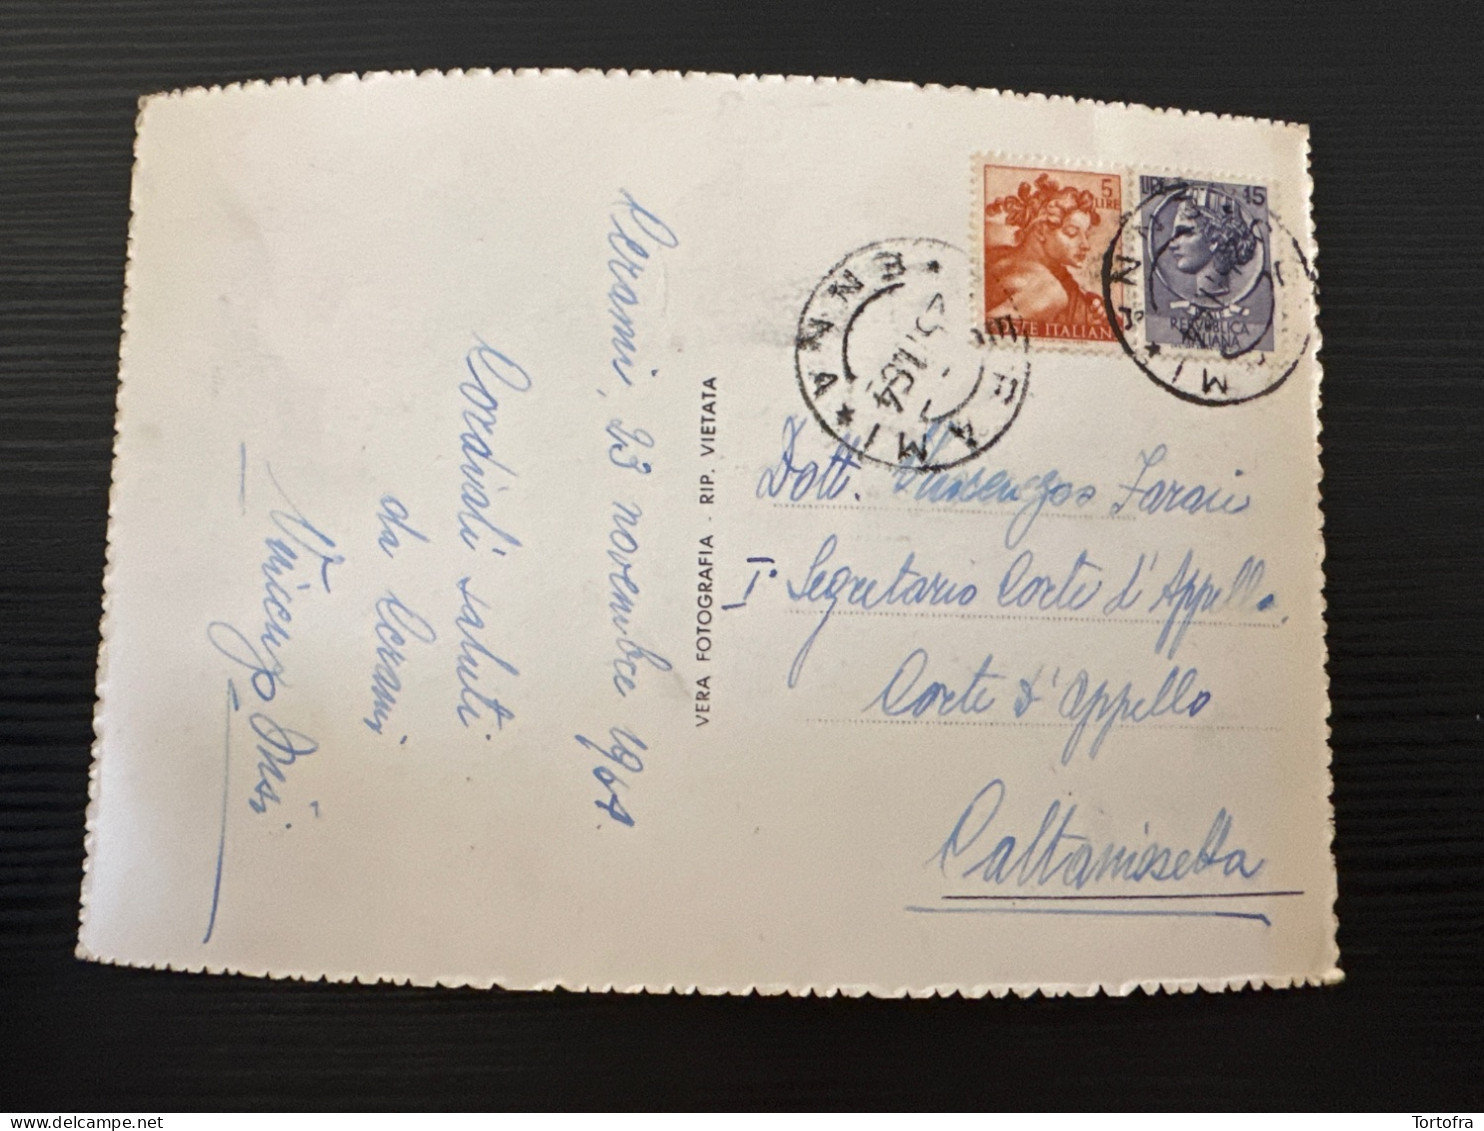 Cerami, 23 novembre 1964
Cordiali saluti
da Cerami
Vincenzo
VERA FOTOGRAFIA - RIP. VIETATA
5
LIRE
POSTE ITALIANE
LIRE 15
REPVBBLICA
ITALIANA
CERAMI * ENNA *
Dott. Vincenzo
I° Segretario Corte d'Appello
Corte d'Appello
Caltanissetta
delcampe.net
Tortofra